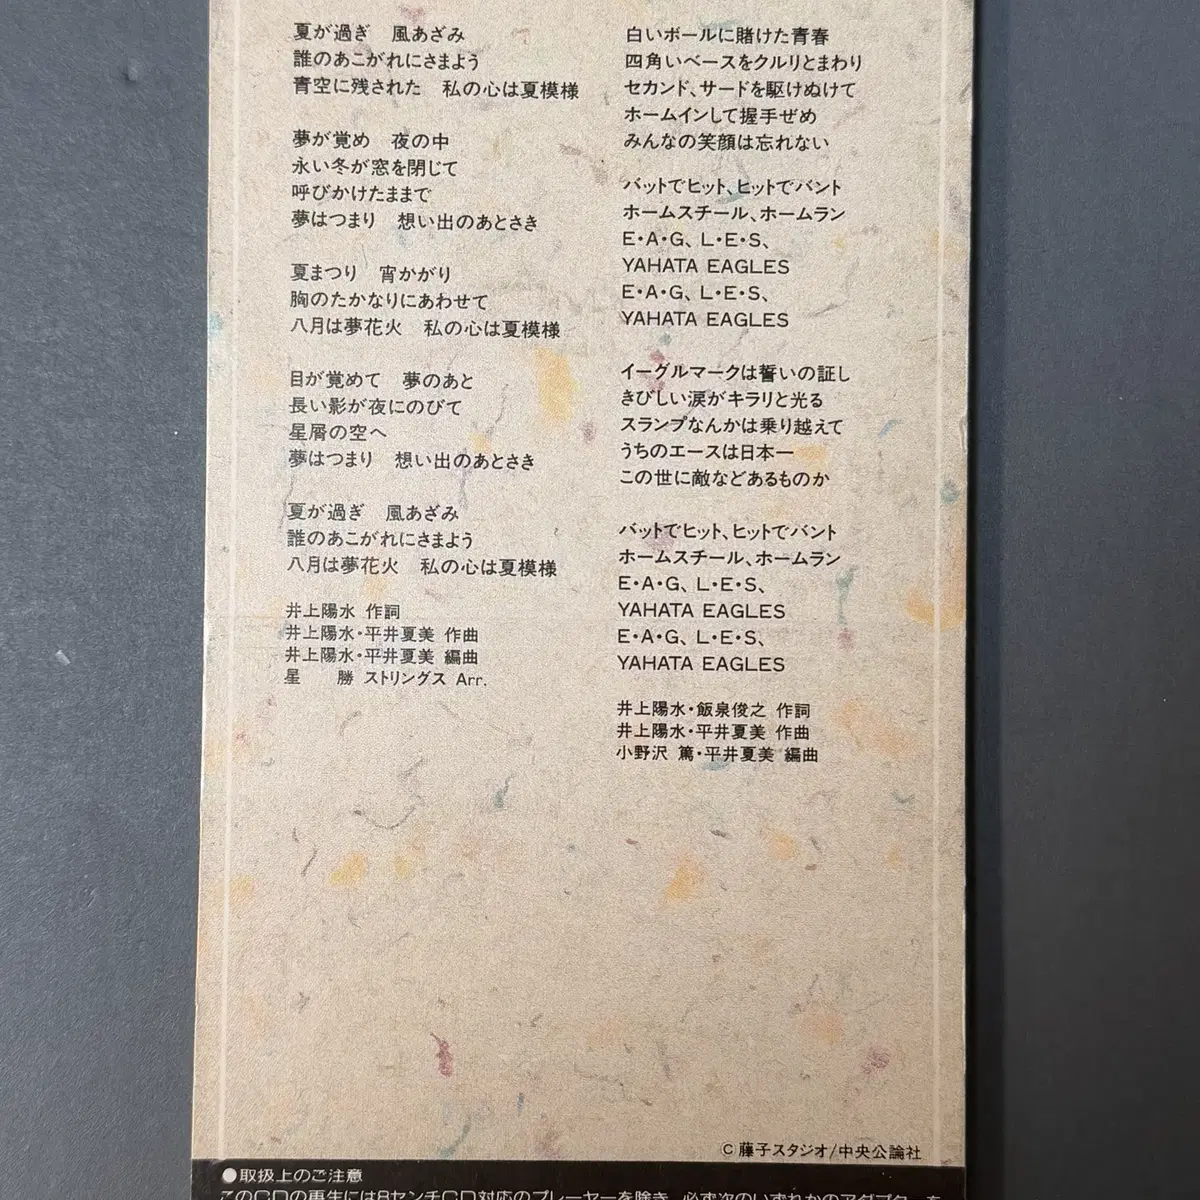 夏が過ぎ　風あざみ
誰のあこがれにさまよう
青空に残された　私の心は夏模様
夢が覚め　夜の中
永い冬が窓を閉じて
呼びかけたままで
夢はつまり　想い出のあとさき
夏まつり　宵かがり
胸のたかなりにあわせて
八月は夢花火　私の心は夏模様
目が覚めて　夢のあと
長い影が夜にのびて
星屑の空へ
夢はつまり　想い出のあとさき
夏が過ぎ　風あざみ
誰のあこがれにさまよう
八月は夢花火　私の心は夏模様
井上陽水 作詞
井上陽水・平井夏美 作曲
井上陽水・平井夏美 編曲
星　　勝 ストリングス Arr.
白いボールに賭けた青春
四角いベースをクルリとまわり
セカンド、サードを駆けぬけて
ホームインして握手ぜめ
みんなの笑顔は忘れない
バットでヒット、ヒットでバント
ホームスチール、ホームラン
E・A・G、L・E・S、
YAHATA EAGLES
E・A・G、L・E・S、
YAHATA EAGLES
イーグルマークは誓いの証し
きびしい涙がキラリと光る
スランプなんかは乗り越えて
うちのエースは日本一
この世に敵などあるものか
バットでヒット、ヒットでバント
ホームスチール、ホームラン
E・A・G、L・E・S、
YAHATA EAGLES
E・A・G、L・E・S、
YAHATA EAGLES
井上陽水・飯泉俊之 作詞
井上陽水・平井夏美 作曲
小野沢 篤・平井夏美 編曲
© 藤子スタジオ/中央公論社
●取扱上のご注意
このCDの再生には8センチCD対応のプレーヤーを除き、必ず次のいずれかのアダプターを